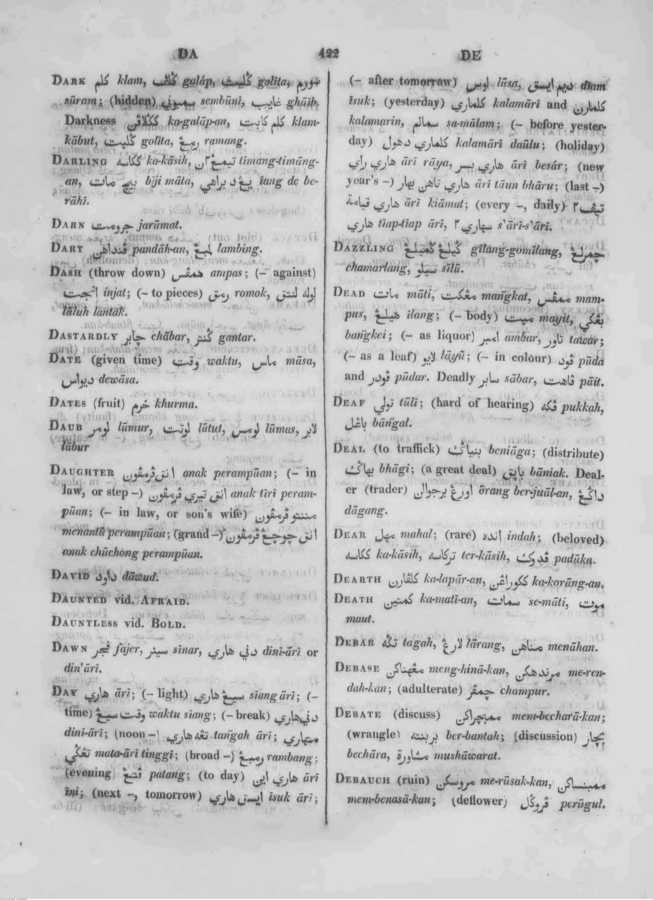 DA
422
DE
DARK كلم klam, گلڤ galáp, گليت golita, سورم
sūram; (hidden) سمبوني sembūnī, غايب ghāib,
Darkness كگلاڤن ka-galāp-an, كلم كابت klam-
kābut, گليت golīta, رمڠ ramang.
DARLING ككاسه ka-kāsih, تيمڠ٢ن timang-timāng-
an, بيج مات biji māta, يڠ د براهي iang de be-
rāhī.
DARN جرومت jarūmat.
DART ڤنداهن pandāh-an, لمبڠ lambing.
DASH (throw down) همڤس ampas; (– against)
انجت injat; (– to pieces) رمق romok, لوله لنتق
lūluh lantak.
DASTARDLY چابر chābar, گنتر gantar.
DATE (given time) وقت waktu, ماس māsa,
ديواس dewāsa.
DATES (fruit) خرم khurma.
DAUB لومر lūmur, لوتت lūtut, لومس lūmas, لابر
lābur
DAUGHTER انق ڤرمڤون anak perampūan; (– in
law, or step –) انق تيري ڤرمڤون anak tīrī peram-
pūan; (– in law, or son's wife) مننتو ڤرمڤون
menantū perampūan; (grand –) انق چوچڠ ڤرمڤون
anak chūchong perampūan.
DAVID داود dāwud.
DAUNTED vid. AFRAID.
DAUNTLESS vid. BOLD.
DAWN فجر fajer, سينر sinar, دني هاري dini-āri or
din'āri.
DAY هاري āri; (– light) سيڠ هاري siang āri; (–
time) وقت سيڠ waktu siang; (– break) دني هاري
dini-āri; (noon –) تڠه هاري tangah āri; متهاري
تڠگي mata-āri tinggi; (broad –) رمبڠ rambang;
(evening) ڤتڠ patang; (to day) هاري اين āri
īni; (next –, tomorrow) ايسق هاري īsuk āri;
(– after tomorrow) لوس lūsa, ديم ايسق diam
īsuk; (yesterday) كلماري kalamāri and كلمارن
kalamarin, سمالم sa-mālam; (– before yester-
day) كلماري دهول kalamāri daūlu; (holiday)
هاري راي āri rāya, هاري بسر āri besār; (new
year's –) هاري تاهن بهار āri tāun bhāru; (last –)
هاري قيامة āri kiāmat; (every –, daily) تيڤ٢
هاري tiap-tiap āri, سهاري٢ s'āri-s'āri.
DAZZLING گيلڠ گميلڠ gīlang-gomīlang, چمرلڠ
chamarlang, سيلو sīlū.
DEAD مات māti, مڠكت mangkat, ممڤس mam-
pus, هيلڠ ilang; (– body) ميت mayit, بڠكي
bangkei; (– as liquor) امبر ambar, تاور tawar;
(– as a leaf) لايو lāyū; (– in colour) ڤود pūda
and ڤودر pūdar. Deadly سابر sābar, ڤاهت pāit.
DEAF تولي tūli; (hard of hearing) ڤكه pukkah,
باڠل bāngal.
DEAL (to traffick) بنياݢ beniāga; (distribute)
بهاݢي bhāgi; (a great deal) باڽق bāniak. Deal-
er (trader) اورڠ برجوالن ōrang ber-jūāl-an, داݢڠ
dāgang.
DEAR مهل mahal; (rare) انده indah; (beloved)
ككاسه ka-kāsih, تركاسه ter-kāsih, ڤدوك padūka.
DEARTH كلاڤرن ka-lapār-an, ككوراڠن ka-korāng-an.
DEATH كمتين ka-matī-an, سمات se-māti, موت
maut.
DEBAR تگه tagah, لارڠ lārang, مناهن menāhan.
DEBASE مڠهيناكن meng-hinā-kan, مرندهكن me-ren-
dah-kan; (adulterate) چمڤر champur.
DEBATE (discuss) ممبچراكن mem-becharā-kan;
(wrangle) بربنته ber-bantah; (discussion) بچار
bechāra, مشاورة mushāwarat.
DEBAUCH (ruin) مروسكن me-rūsak-kan, ممبنساكن
mem-benasā-kan; (deflower) ڤروگل perūgul.